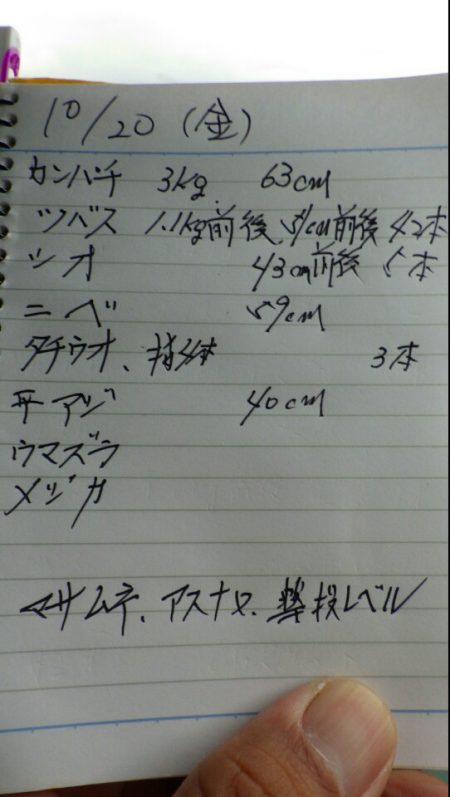 10/20 (金)
カンパチ 3kg. 63cm
ツバス 1.1kg前後、51cm前後 42本
シオ 43cm前後 5本
ニベ 59cm
タチウオ、 3本
平アジ 40cm
ウマズラ
メジカ
マサムネ、アスナロ、 レベル